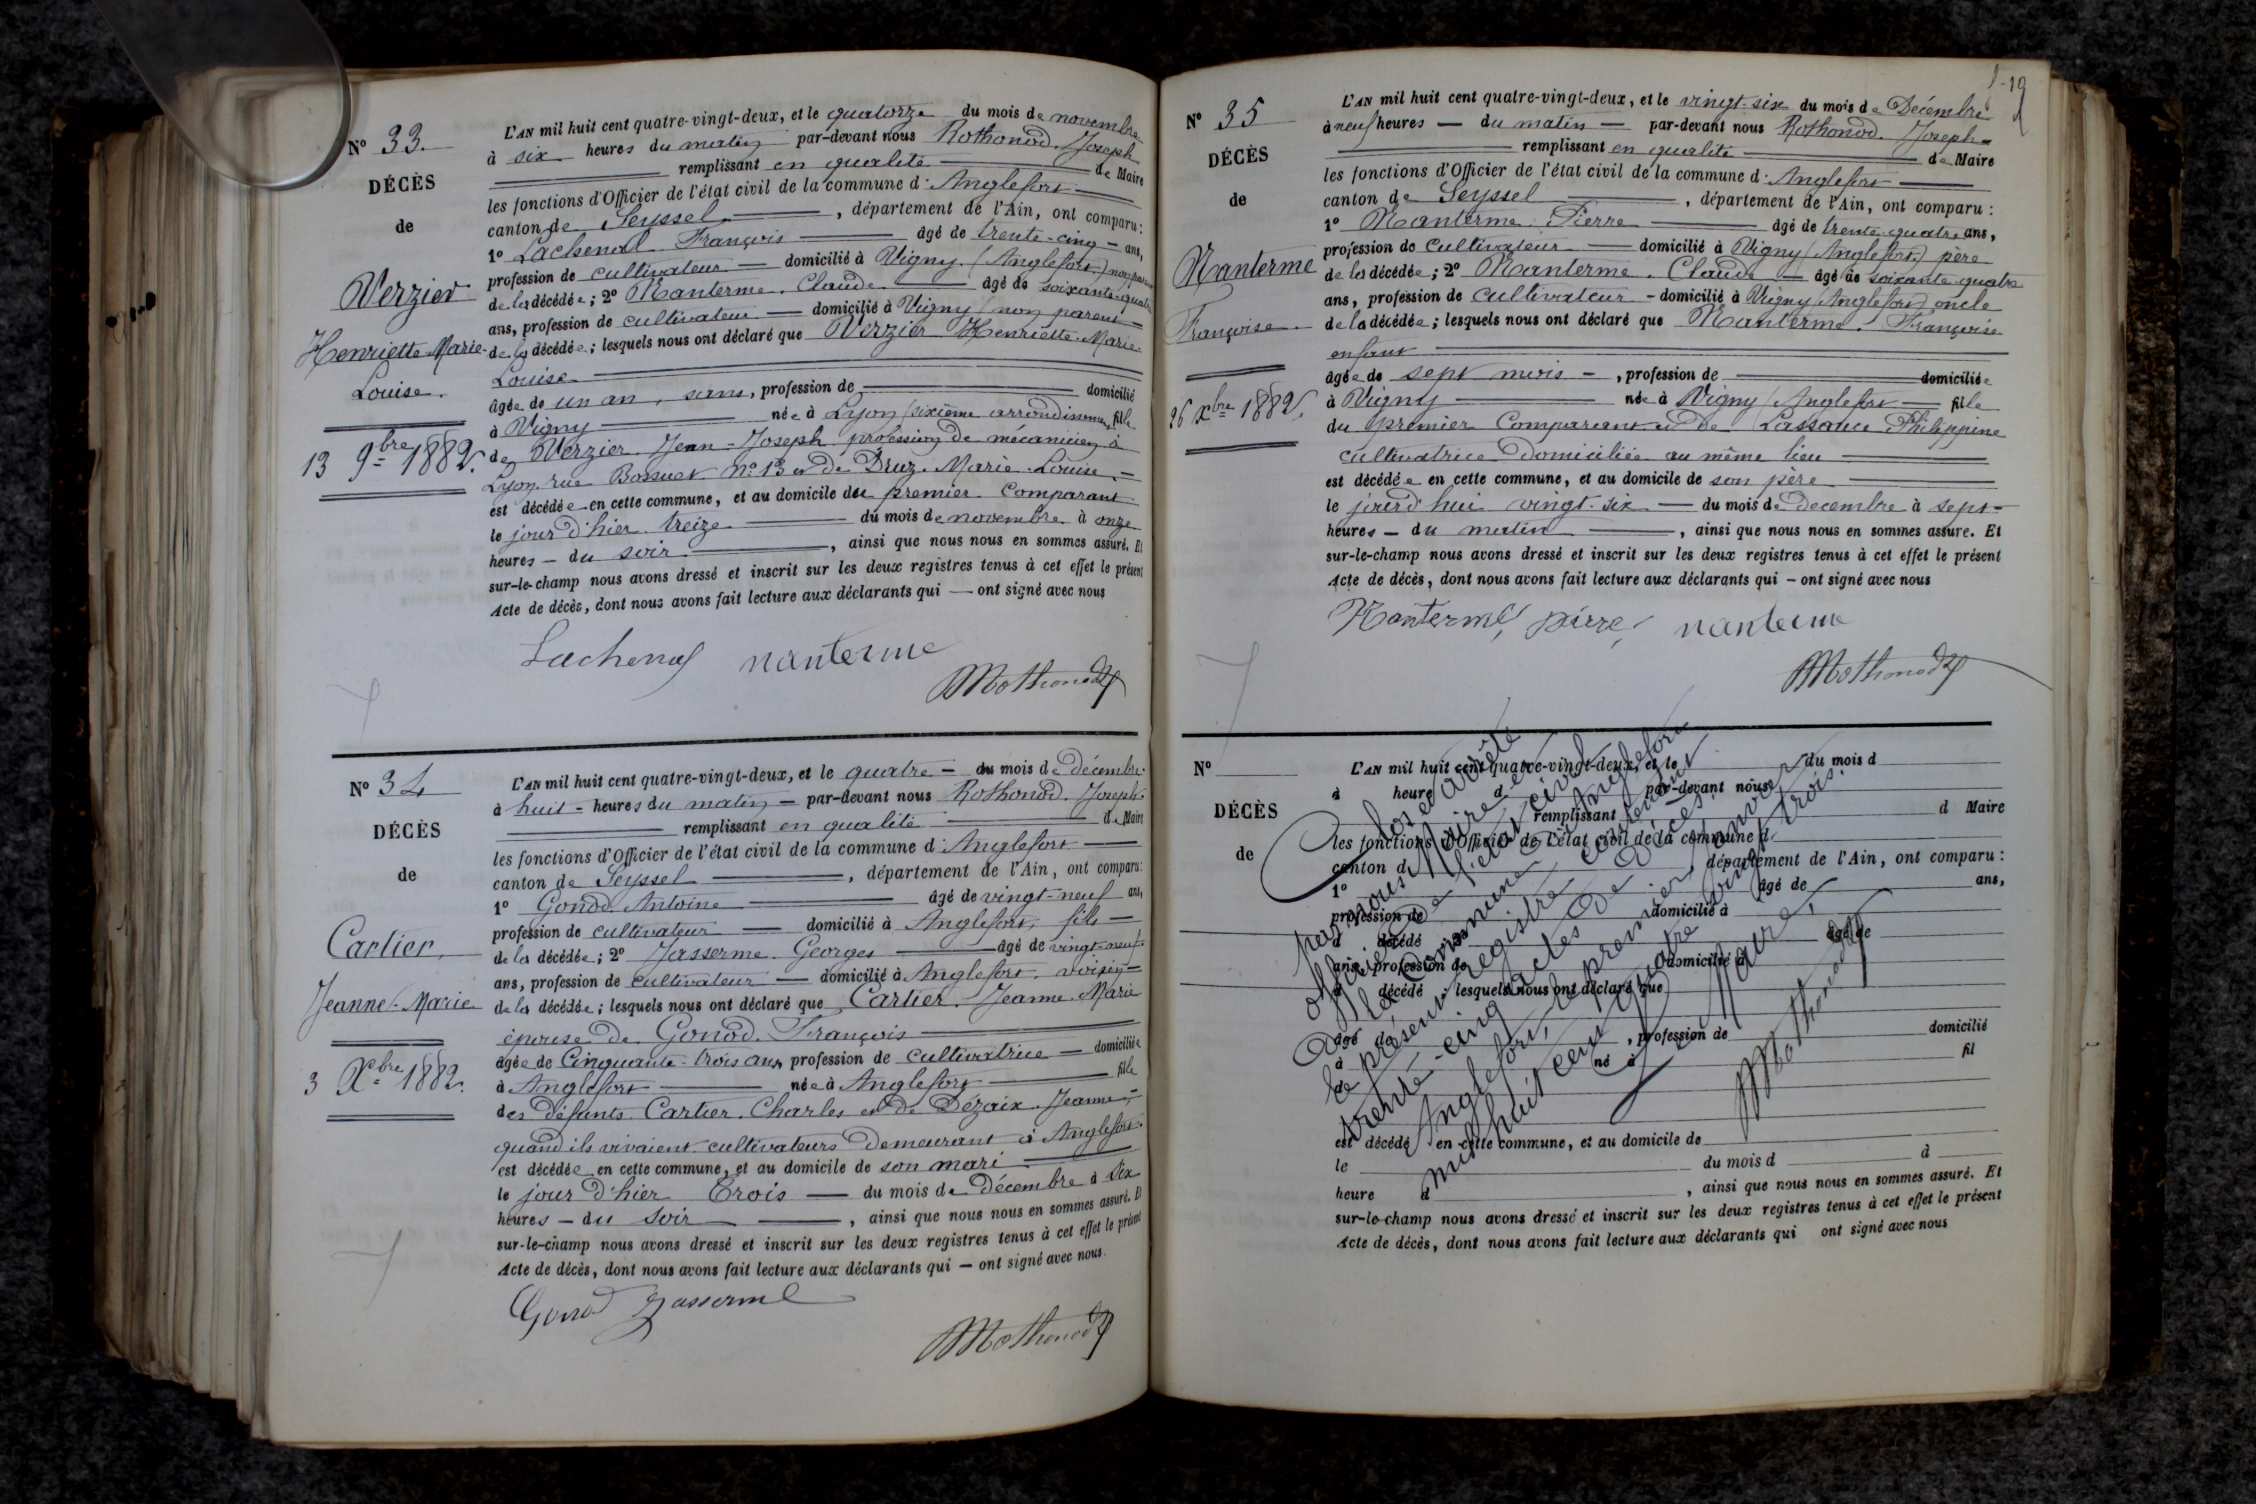 N° 33.
DÉCÈS
de
Verzier
Henriette Marie
Louise.
13 9bre 1882.
L'AN mil huit cent quatre-vingt-deux, et le quatorze du mois de novembre
à six heures du matin par-devant nous Rothonod. Joseph
remplissant en qualité de Maire
les fonctions d'Officier de l'état civil de la commune d'Anglefort
canton de Seyssel, département de l'Ain, ont comparu :
1° Lachenal François âgé de trente-cinq ans,
profession de cultivateur domicilié à Vigny (Anglefort) non parent
de la décédée ; 2° Nanterme. Claude âgé de soixante-quatre
ans, profession de cultivateur domicilié à Vigny / non parent
de la décédée ; lesquels nous ont déclaré que Verzier Henriette-Marie
Louise
âgée de un an, sans, profession de domicilié
à Vigny née à Lyon (sixième arrondissement, fille
de Verzier Jean-Joseph profession de mécanicien à
Lyon, rue Bossuet n° 13 et de Druz Marie Louise
est décédée en cette commune, et au domicile du premier Comparant
le jour d'hier treize du mois de novembre à onze
heures du soir, ainsi que nous nous en sommes assuré. Et
sur-le-champ nous avons dressé et inscrit sur les deux registres tenus à cet effet le présent
Acte de décès, dont nous avons fait lecture aux déclarants qui ont signé avec nous
Lachenal nanterme
Rothonod
N° 34
DÉCÈS
de
Cartier
Jeanne-Marie
3 Xbre 1882.
L'AN mil huit cent quatre-vingt-deux, et le quatre du mois de décembre
à huit heures du matin par-devant nous Rothonod. Joseph
remplissant en qualité de Maire
les fonctions d'Officier de l'état civil de la commune d'Anglefort
canton de Seyssel, département de l'Ain, ont comparu :
1° Gonod Antoine âgé de vingt-neuf ans,
profession de cultivateur domicilié à Anglefort, fils
de la décédée ; 2° Jasserme Georges âgé de vingt-neuf
ans, profession de cultivateur domicilié à Anglefort voisin
de la décédée ; lesquels nous ont déclaré que Cartier. Jeanne Marie
épouse de Gonod François
âgée de Cinquante-trois ans, profession de cultivatrice domiciliée
à Anglefort née à Anglefort fille
des défunts Cartier. Charles et de Dézaix Jeanne
quand ils vivaient cultivateurs demeurant à Anglefort.
est décédée en cette commune, et au domicile de son mari
le jour d'hier Trois du mois de décembre à six
heures du soir, ainsi que nous nous en sommes assuré. Et
sur-le-champ nous avons dressé et inscrit sur les deux registres tenus à cet effet le présent
Acte de décès, dont nous avons fait lecture aux déclarants qui ont signé avec nous.
Gonod Jasserme
Rothonod
N° 35
DÉCÈS
de
Nanterme
Françoise.
26 Xbre 1882.
L'AN mil huit cent quatre-vingt-deux, et le vingt-six du mois de Décembre
à neuf heures du matin par-devant nous Rothonod. Joseph
remplissant en qualité de Maire
les fonctions d'Officier de l'état civil de la commune d'Anglefort
canton de Seyssel, département de l'Ain, ont comparu :
1° Nanterme Pierre âgé de trente-quatre ans,
profession de cultivateur domicilié à Vigny (Anglefort) père
de la décédée ; 2° Nanterme. Claude âgé de soixante-quatre
ans, profession de cultivateur domicilié à Vigny (Anglefort) oncle
de la décédée ; lesquels nous ont déclaré que Nanterme. Françoise
enfant
âgée de sept mois, profession de domiciliée
à Vigny née à Vigny / Anglefort fille
du premier Comparant et de Lassauce Philippine
cultivatrice domiciliée au même lieu
est décédée en cette commune, et au domicile de son père
le jourd'hui vingt-six du mois de decembre à sept
heures du matin, ainsi que nous nous en sommes assuré. Et
sur-le-champ nous avons dressé et inscrit sur les deux registres tenus à cet effet le présent
Acte de décès, dont nous avons fait lecture aux déclarants qui ont signé avec nous
Nanterme, pierre, nanterme
Rothonod
N°
DÉCÈS
de
L'AN mil huit cent quatre-vingt-deux, et le du mois d
à heure d par-devant nous
remplissant d Maire
les fonctions d'Officier de l'état civil de la commune d
canton d département de l'Ain, ont comparu :
1° âgé de ans,
profession de domicilié à
d décédé ; 2° âgé de
ans, profession de domicilié à
d décédé ; lesquels nous ont déclaré que
âgé de , profession de domicilié
à né à fil
d
est décédé en cette commune, et au domicile de
le du mois d à
heure d , ainsi que nous nous en sommes assuré. Et
sur-le-champ nous avons dressé et inscrit sur les deux registres tenus à cet effet le présent
Acte de décès, dont nous avons fait lecture aux déclarants qui ont signé avec nous
Clos et arrêté
par nous Maire et
officier de l'état civil
de la Commune d'Anglefort
le présent registre contenant
trente-cinq actes de décès.
Anglefort, le premier janvier
mil huit cent quatre vingt trois.
Le Maire,
Rothonod